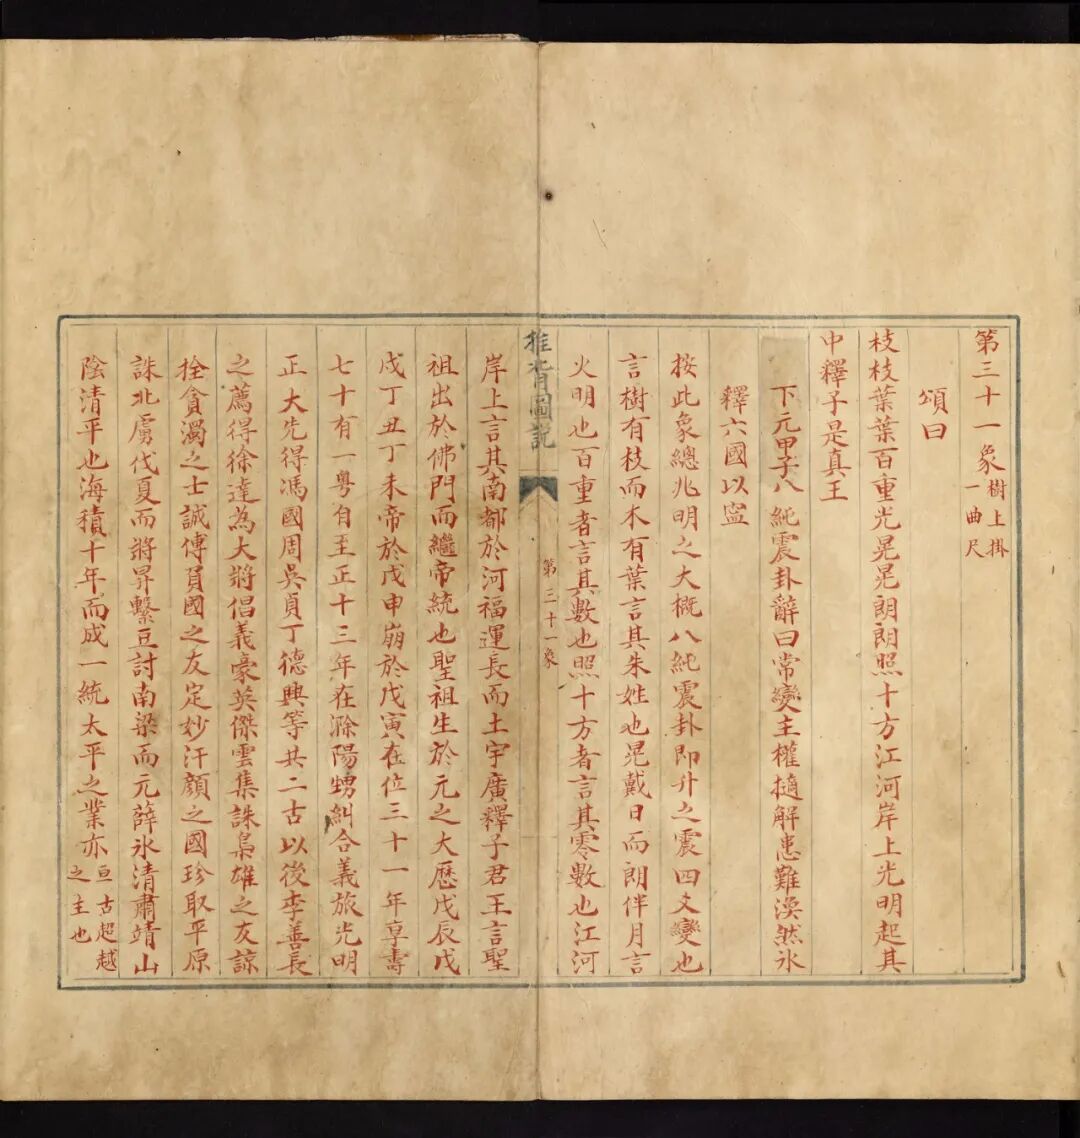 第三十一象 樹上掛
一曲尺
頌曰
枝枝葉葉百重光晃晃朗朗照十方江河岸上光明起其
中釋子是真王
下元甲子八純震卦辭曰常變主權攄解患難渙然氷
釋六國以寍
按此象總兆明之大概八純震卦即升之震四爻變也
言樹有枝而木有葉言其朱姓也晃戴日而朗伴月言
火明也百重者言其數也照十方者言其零數也江河
推背圖說
第三十一象
岸上言其南都於河福運長而土宇廣釋子君王言聖
祖出於佛門而繼帝統也聖祖生於元之大歷戊辰戊
戌丁丑丁未帝於戊申崩於戊寅在位三十一年享壽
七十有一粵自至正十三年在滁陽甥糾合義旅光明
正大先得馮國周吳貞丁德興等共二古以後李善長
之薦得徐達為大將倡義豪英傑雲集誅梟雄之友諒
拴貪濁之士誠傳負國之友定妙汗顏之國珍取平原
誅北虜伐夏而將昇繫豆討南梁而元薛氷清肅靖山
陰清平也海積十年而成一統太平之業亦 亘古超越
之主也